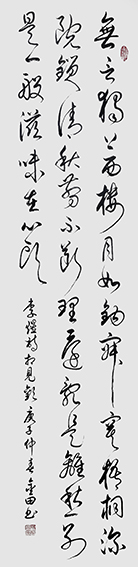 無言獨上西樓月如鉤寂寞梧桐深
院鎖清秋剪不斷理還亂是離愁別
是一般滋味在心頭
李煜詩相見歡庚子仲春金田书